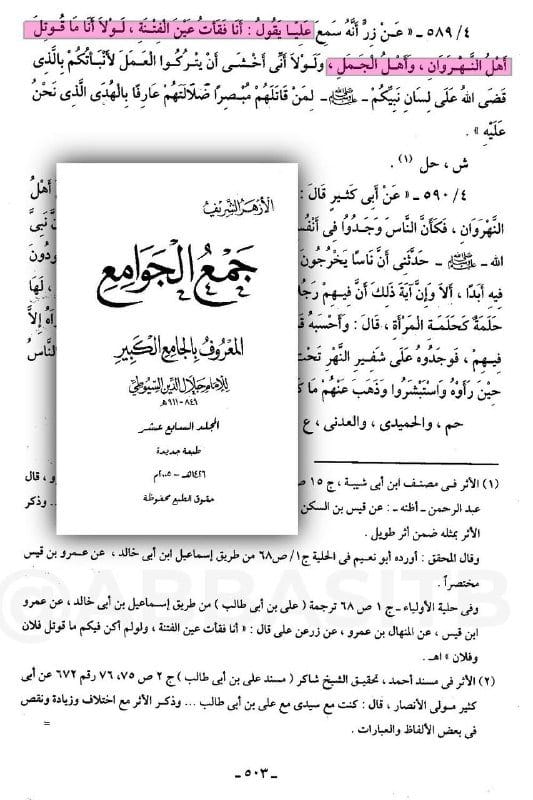 ٥٨٩/٤ ـ « عَنْ زِرٍّ أَنَّهُ سَمِعَ عَلِيّا يَقُولُ : أَنَا فَقَأتُ عَيْنَ الفِتْنَةِ ، لَـوْلاَ أَنَا مَا قُوتِلَ
أَهْلُ النَّهْرَوَانِ ، وَأَهْلُ الْجَمَلِ ، وَلَوْلاَ أَنِّى أَخْشَى أَنْ يَتْرُكُوا العَمَلَ لأَنْبَأتُكُمْ بِالَّذِى
قَضَى اللهُ عَلَى لِسَانِ نَبِيِّكُمْ ـ ﷺ ـ لِمَنْ قَاتَلَهُمْ مُبْصِرًا ضَلاَلَتَهُمْ عَارِفًا بِالْهُدَى الَّذِى نَحْنُ
عَلَيْهِ » .
ش ، حل (١) .
٥٩٠/٤ ـ « عَنْ أَبِى كَثِيرٍ قَالَ :
أَهْلُ
النَّهْرَوَانِ ، فَكَأَنَّ النَّاسَ وَجَدُوا فِى
نَبِىَّ
الله ـ ﷺ ـ حَدَّثَنِى أَنَّ نَاسًا يَخْرُجُونَ
فِيهِ أَبَدًا ، أَلاَ وَإِنَّ آيَةَ ذَلِكَ أَنَّ فِيهِمْ
، لَهَا
حَلَمَةٌ كَحَلَمَةِ الْمَرْأَةِ ، قَالَ : وَأَحْسَبُهُ
إِلاَّ
فِيهِمْ ، فَوَجَدُوهُ عَلَى شَفِيرِ النَّهْرِ
النَّاسُ
حِينَ رَأَوْهُ وَاسْتَبْشَرُوا وَذَهَبَ عَنْهُمْ مَا
حم ، والحميدى ، والعدنى ، ع
الأزهر الشريف
جمع الجوامع
المعروف بالجامع الكبير
للإمام جلال الدين السيوطى
٨٤٩ - ٩١١ هـ
المجلد السابع عشر
طبعة جديدة
١٤٢٦هـ - ٢٠٠٥م
حقوق الطبع محفوظة
(١) الأثر فى مصنف ابن أبى شيبة ، ج ١٥ ص
، قال
عبد الرحمن ـ أظنه ـ : عن قيس بن السكن
... وذكر
الأثر بمثله ضمن أثر طويل .
وقال المحقق : أورده أبو نعيم فى الحلية ج١/ ص٦٨ من طريق إسماعيل بن أبى خالد ، عن عمرو بن قيس
مختصراً .
وفى حلية الأولياء ـ ج ١ ص ٦٨ ترجمة ( على بن أبى طالب ) من طريق إسماعيل بن أبى خالد ، عن عمرو
ابن قيس ، عن المنهال بن عمرو ، عن زرعن على قال : « أنا فقأت عين الفتنة ، ولولم أكن فيكم ما قوتل فلان
وفلان » اهـ .
(٢) الأثر فى مسند أحمد ، تحقيق الشيخ شاكر ( مسند على بن أبى طالب ) ج ٢ ص ٧٥، ٧٦ رقم ٦٧٢ عن أبى
كثير مولى الأنصار ، قال : كنت مع سيدى مع على بن أبى طالب ... وذكر الأثر مع اختلاف وزيادة ونقص
فى بعض الألفاظ والعبارات .
=
ـ ٥٠٣ ـ